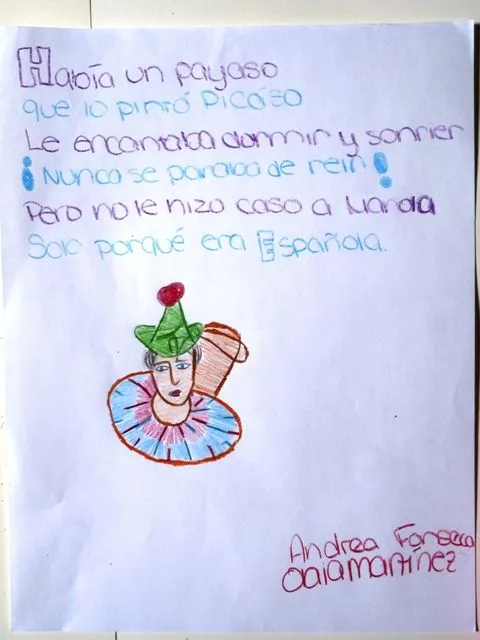 Había un payaso
que lo pintó Picaso
Le encantaba dormir y sonrier
¡Nunca se paraba de reir!
Pero no le hizo caso a
Solo porqué era Española.
Andrea Fonseca
Martínez